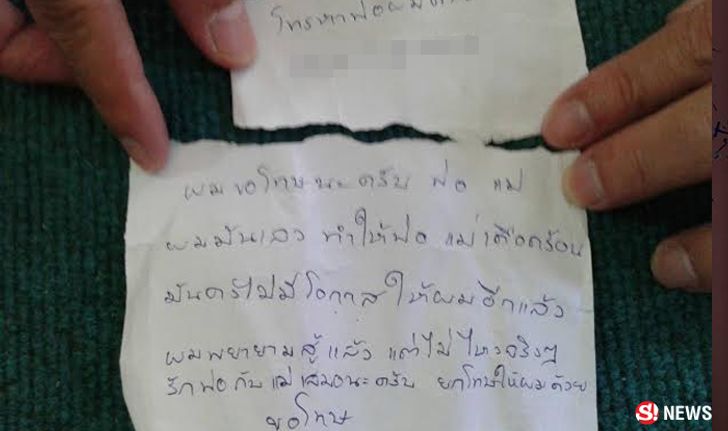 โทรหาพ่อผม
ผมขอโทษนะครับ พ่อ แม่
ผมมันเลว ทำให้พ่อ แม่เดือดร้อน
มันคงไม่มีโอกาสให้ผมอีกแล้ว
ผมพยายามสู้แล้ว แต่ไม่ไหวจริงๆ
รักพ่อกับแม่เสมอนะครับ ยกโทษให้ผมด้วย
ขอโทษ
S! NEWS